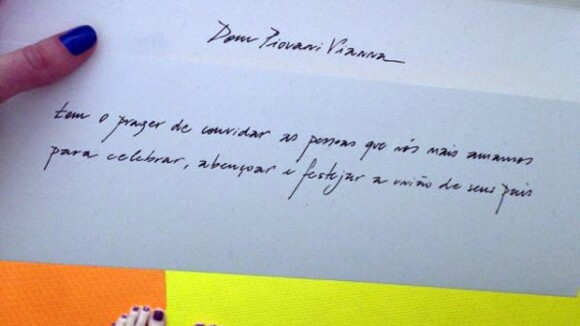 Dom Piovani Vianna
tem o prazer de convidar as pessoas que nós mais amamos
para celebrar, abençoar e festejar a união de seus pais